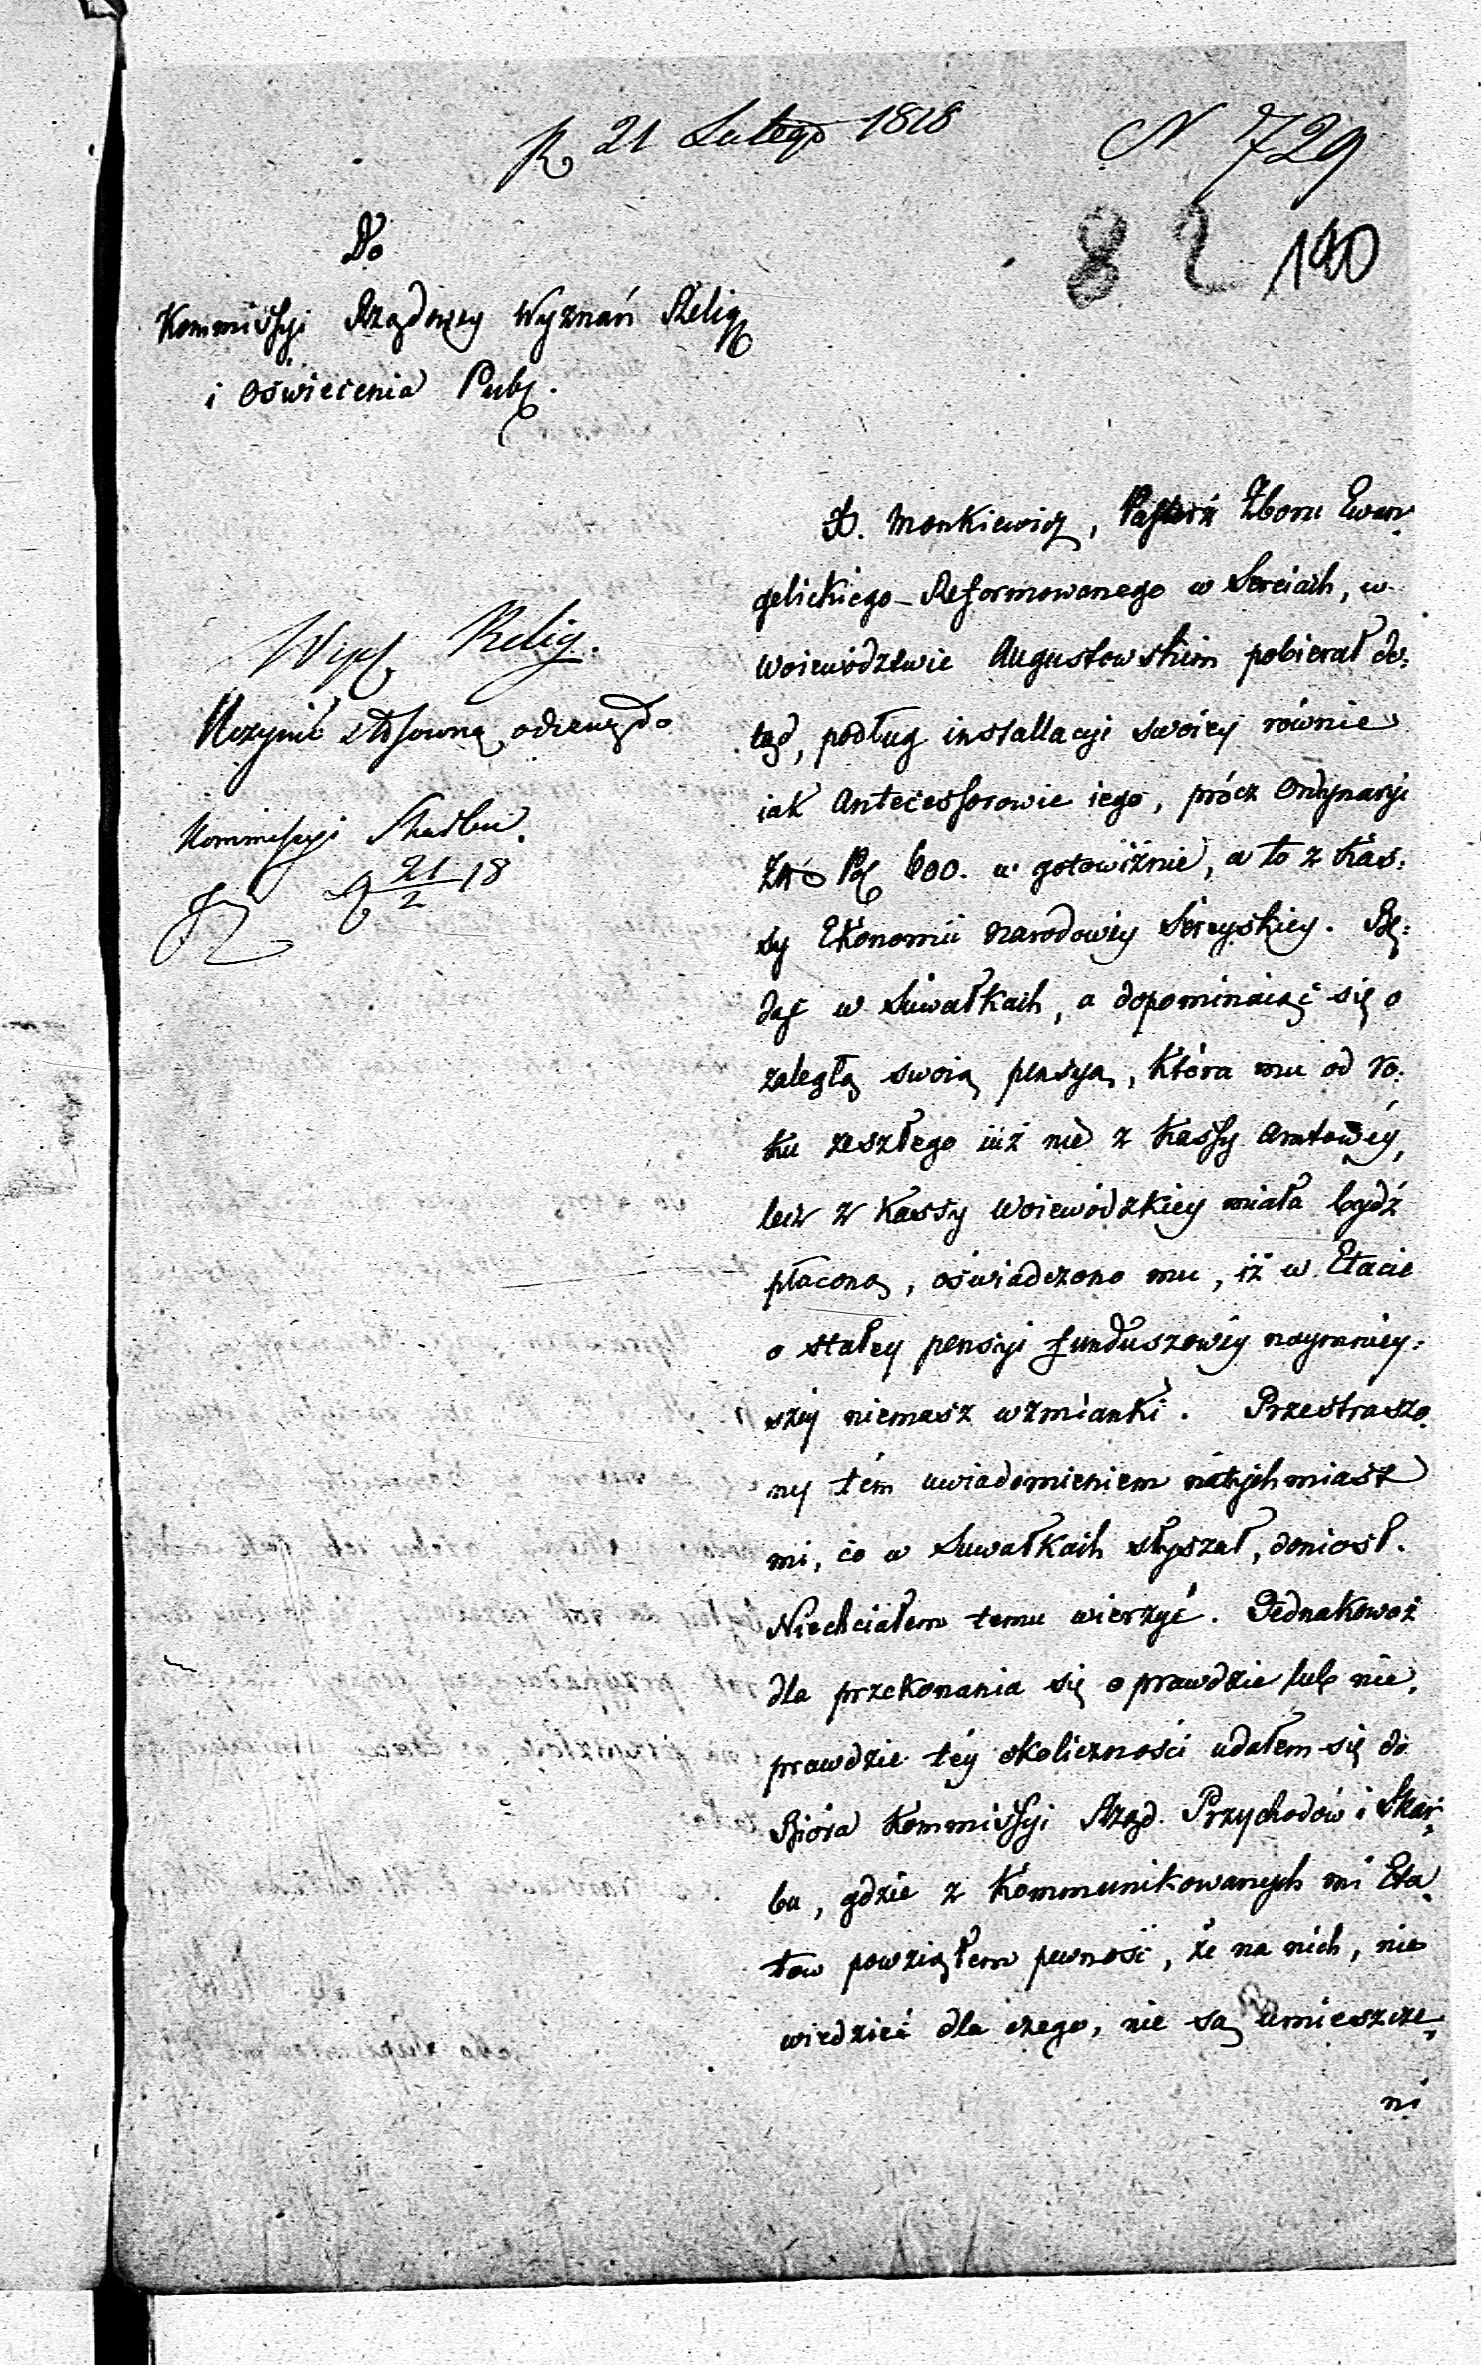 R 21 Lutego 1818
N 729
82 140
Do
Kommissyi Rządowey Wyznań Relig
i Oświecenia Pub.
Wyz Relig.
Uczynić stosowną odezwę do
Kommissyi Skarbu.
21/2 18
X. Monkiewicz, Pasterz Zboru Ewan,
gelickiego-Reformowanego w Sereiach, w
Woiewództwie Augustowskim pobierał do,
tąd, podług installacyi swoiey równie
iak Antecessorowie iego, prócz Ordynaryi
Zło Pol 600. w gotowiźnie, a to z Kas,
sy Ekonomii Narodowey Sereyskiey. Bę,
dąc w Suwałkach, a dopominaiąc się o
zaległą swoią pensyą, która mu od ro,
ku zeszłego iuż nie z Kassy Amtowéy,
lecz z Kassy Woiewódzkiey miała bydź
płaconą, oświadczono mu, iż w Etacie
o stałey pensyi funduszowéy naymniey,
széy niemasz wzmianki. Przestraszo,
ny tém uwiadomieniem natychmiast
mi, co w Suwałkach słyszał, doniosł.
Niechciałem temu wierzyć. Jednakowoż
dla przekonania się o prawdzie lub nie,
prawdzie téy okoliczności udałem się do
Bióra Kommissyi Rząd. Przychodów i Skar,
bu, gdzie z Kommunikowanych mi Eta,
tow powziąłem pewność, że na nich, nie
wiedzieć dla czego, nie są umieszcze,
ni